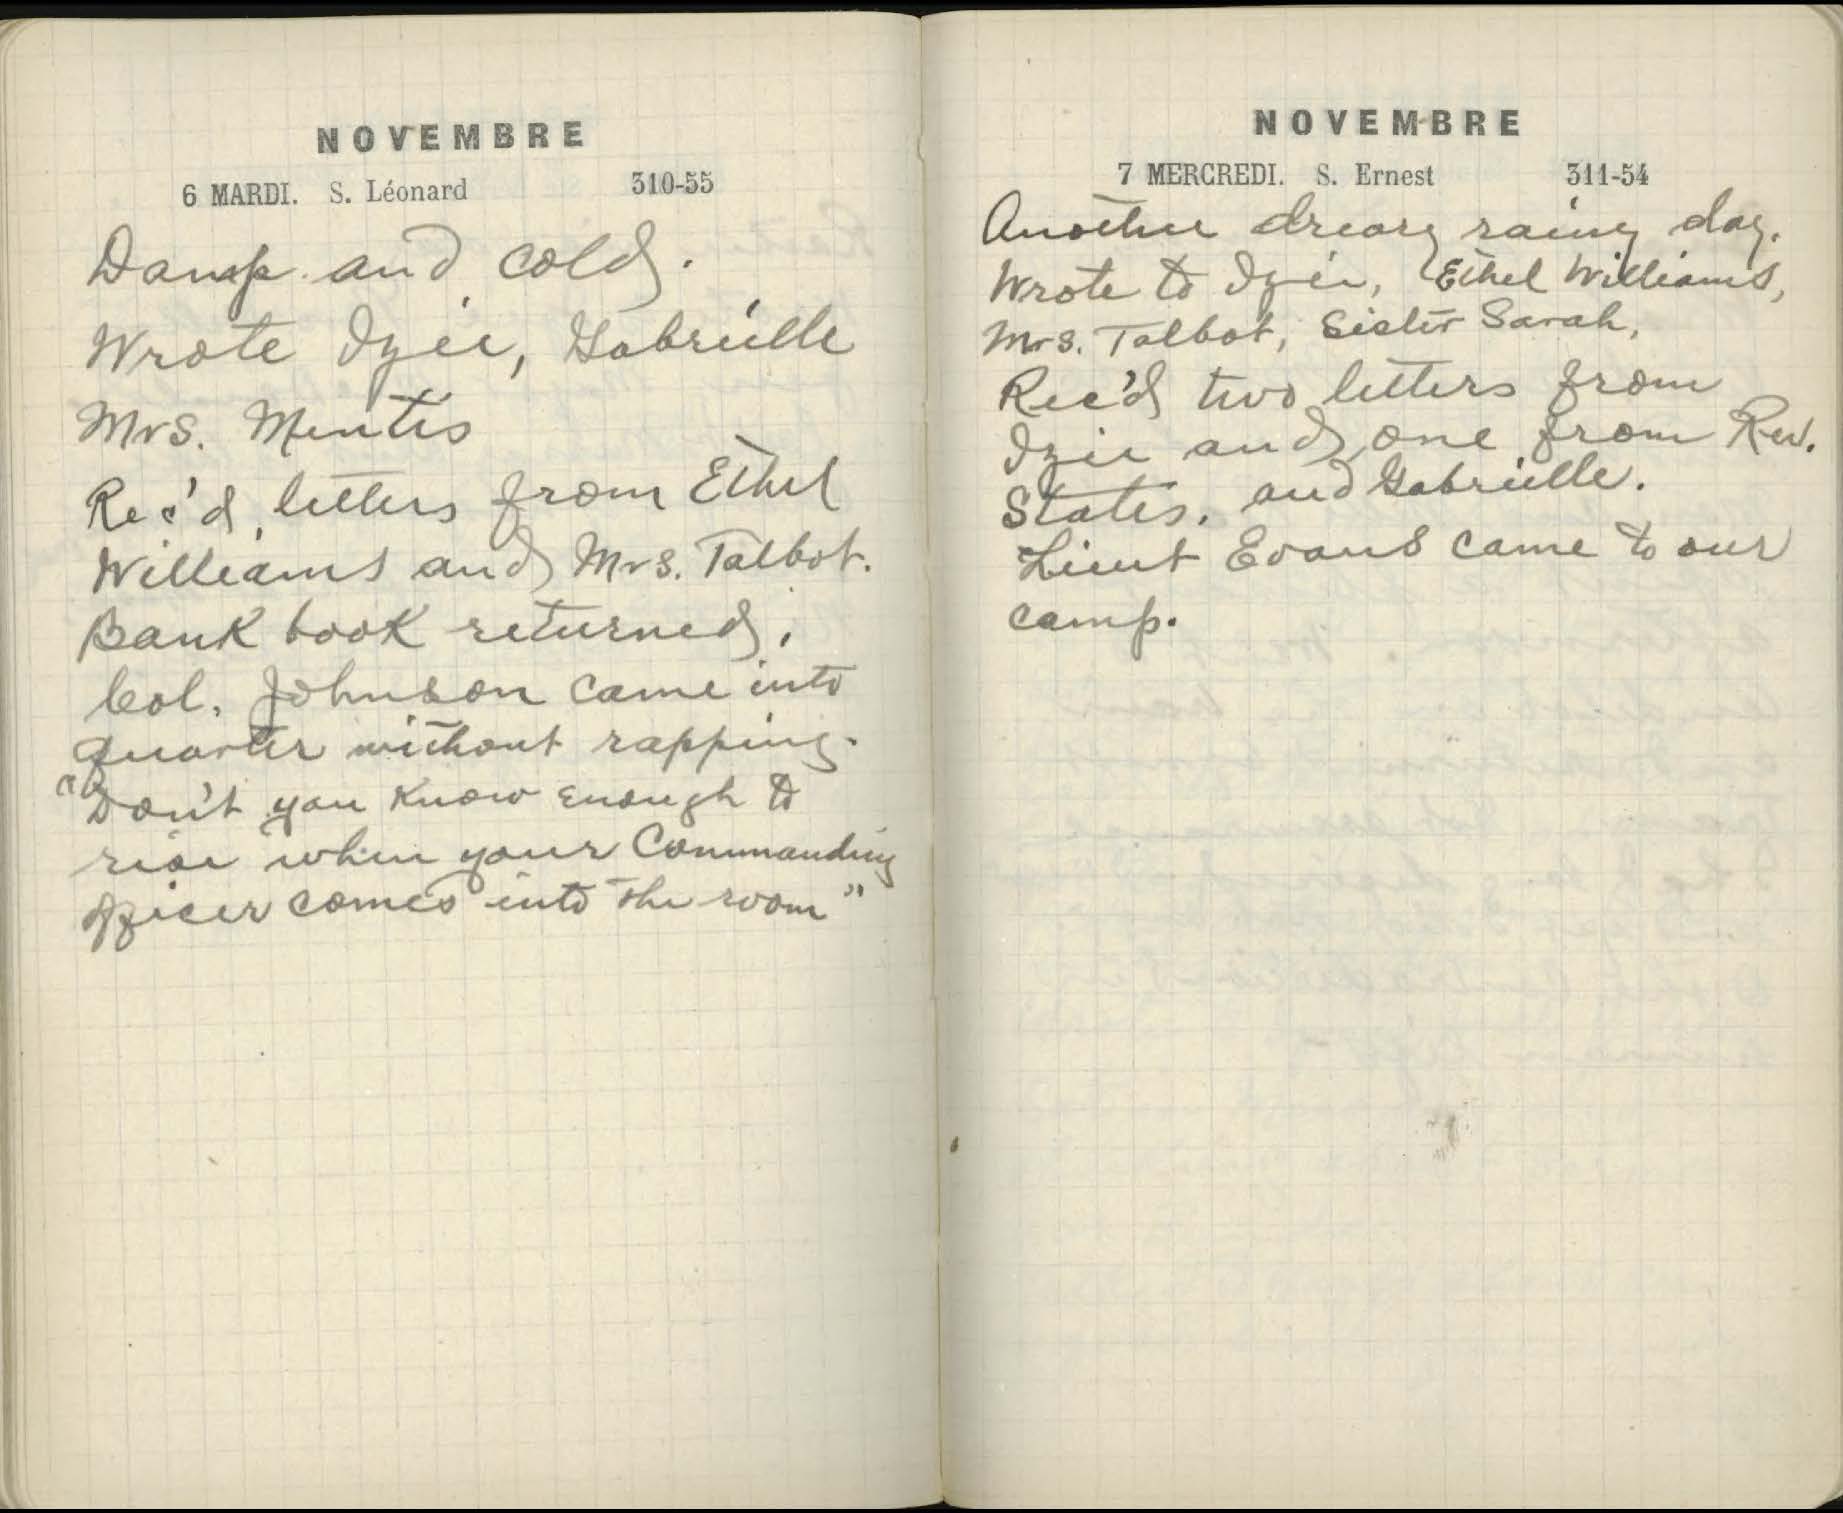 NOVEMBRE
6 MARDI. S. Léonard 310-55
Damp and cold.
Wrote Izie, Gabrielle
Mrs. Mentis
Rec'd letters from Ethel
Williams and Mrs. Talbot.
Bank book returned.
Col. Johnson came into
quarter without rapping.
"Don't you know enough to
rise when your Commanding
officer comes into the room"
NOVEMBRE
7 MERCREDI. S. Ernest 311-54
Another dreary rainy day.
Wrote to Izie, Ethel Williams,
Mrs. Talbot, Sister Sarah,
Rec'd two letters from
Izie and one from Rev.
States. and Gabrielle.
Lieut Evans came to our
camp.